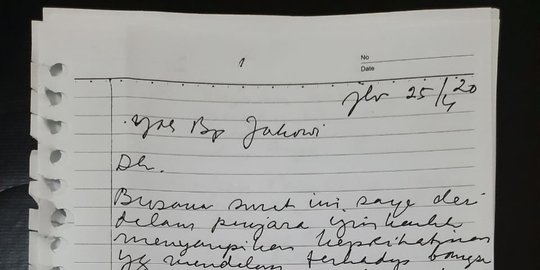 1
No
Date
Jkr 25/4 20
Yth Bp Jokowi
Dh.
Bersama surat ini saya dari
dalam penjara izinkanlah
menyampaikan keprihatinan
yg mendalam terhadap bangsa